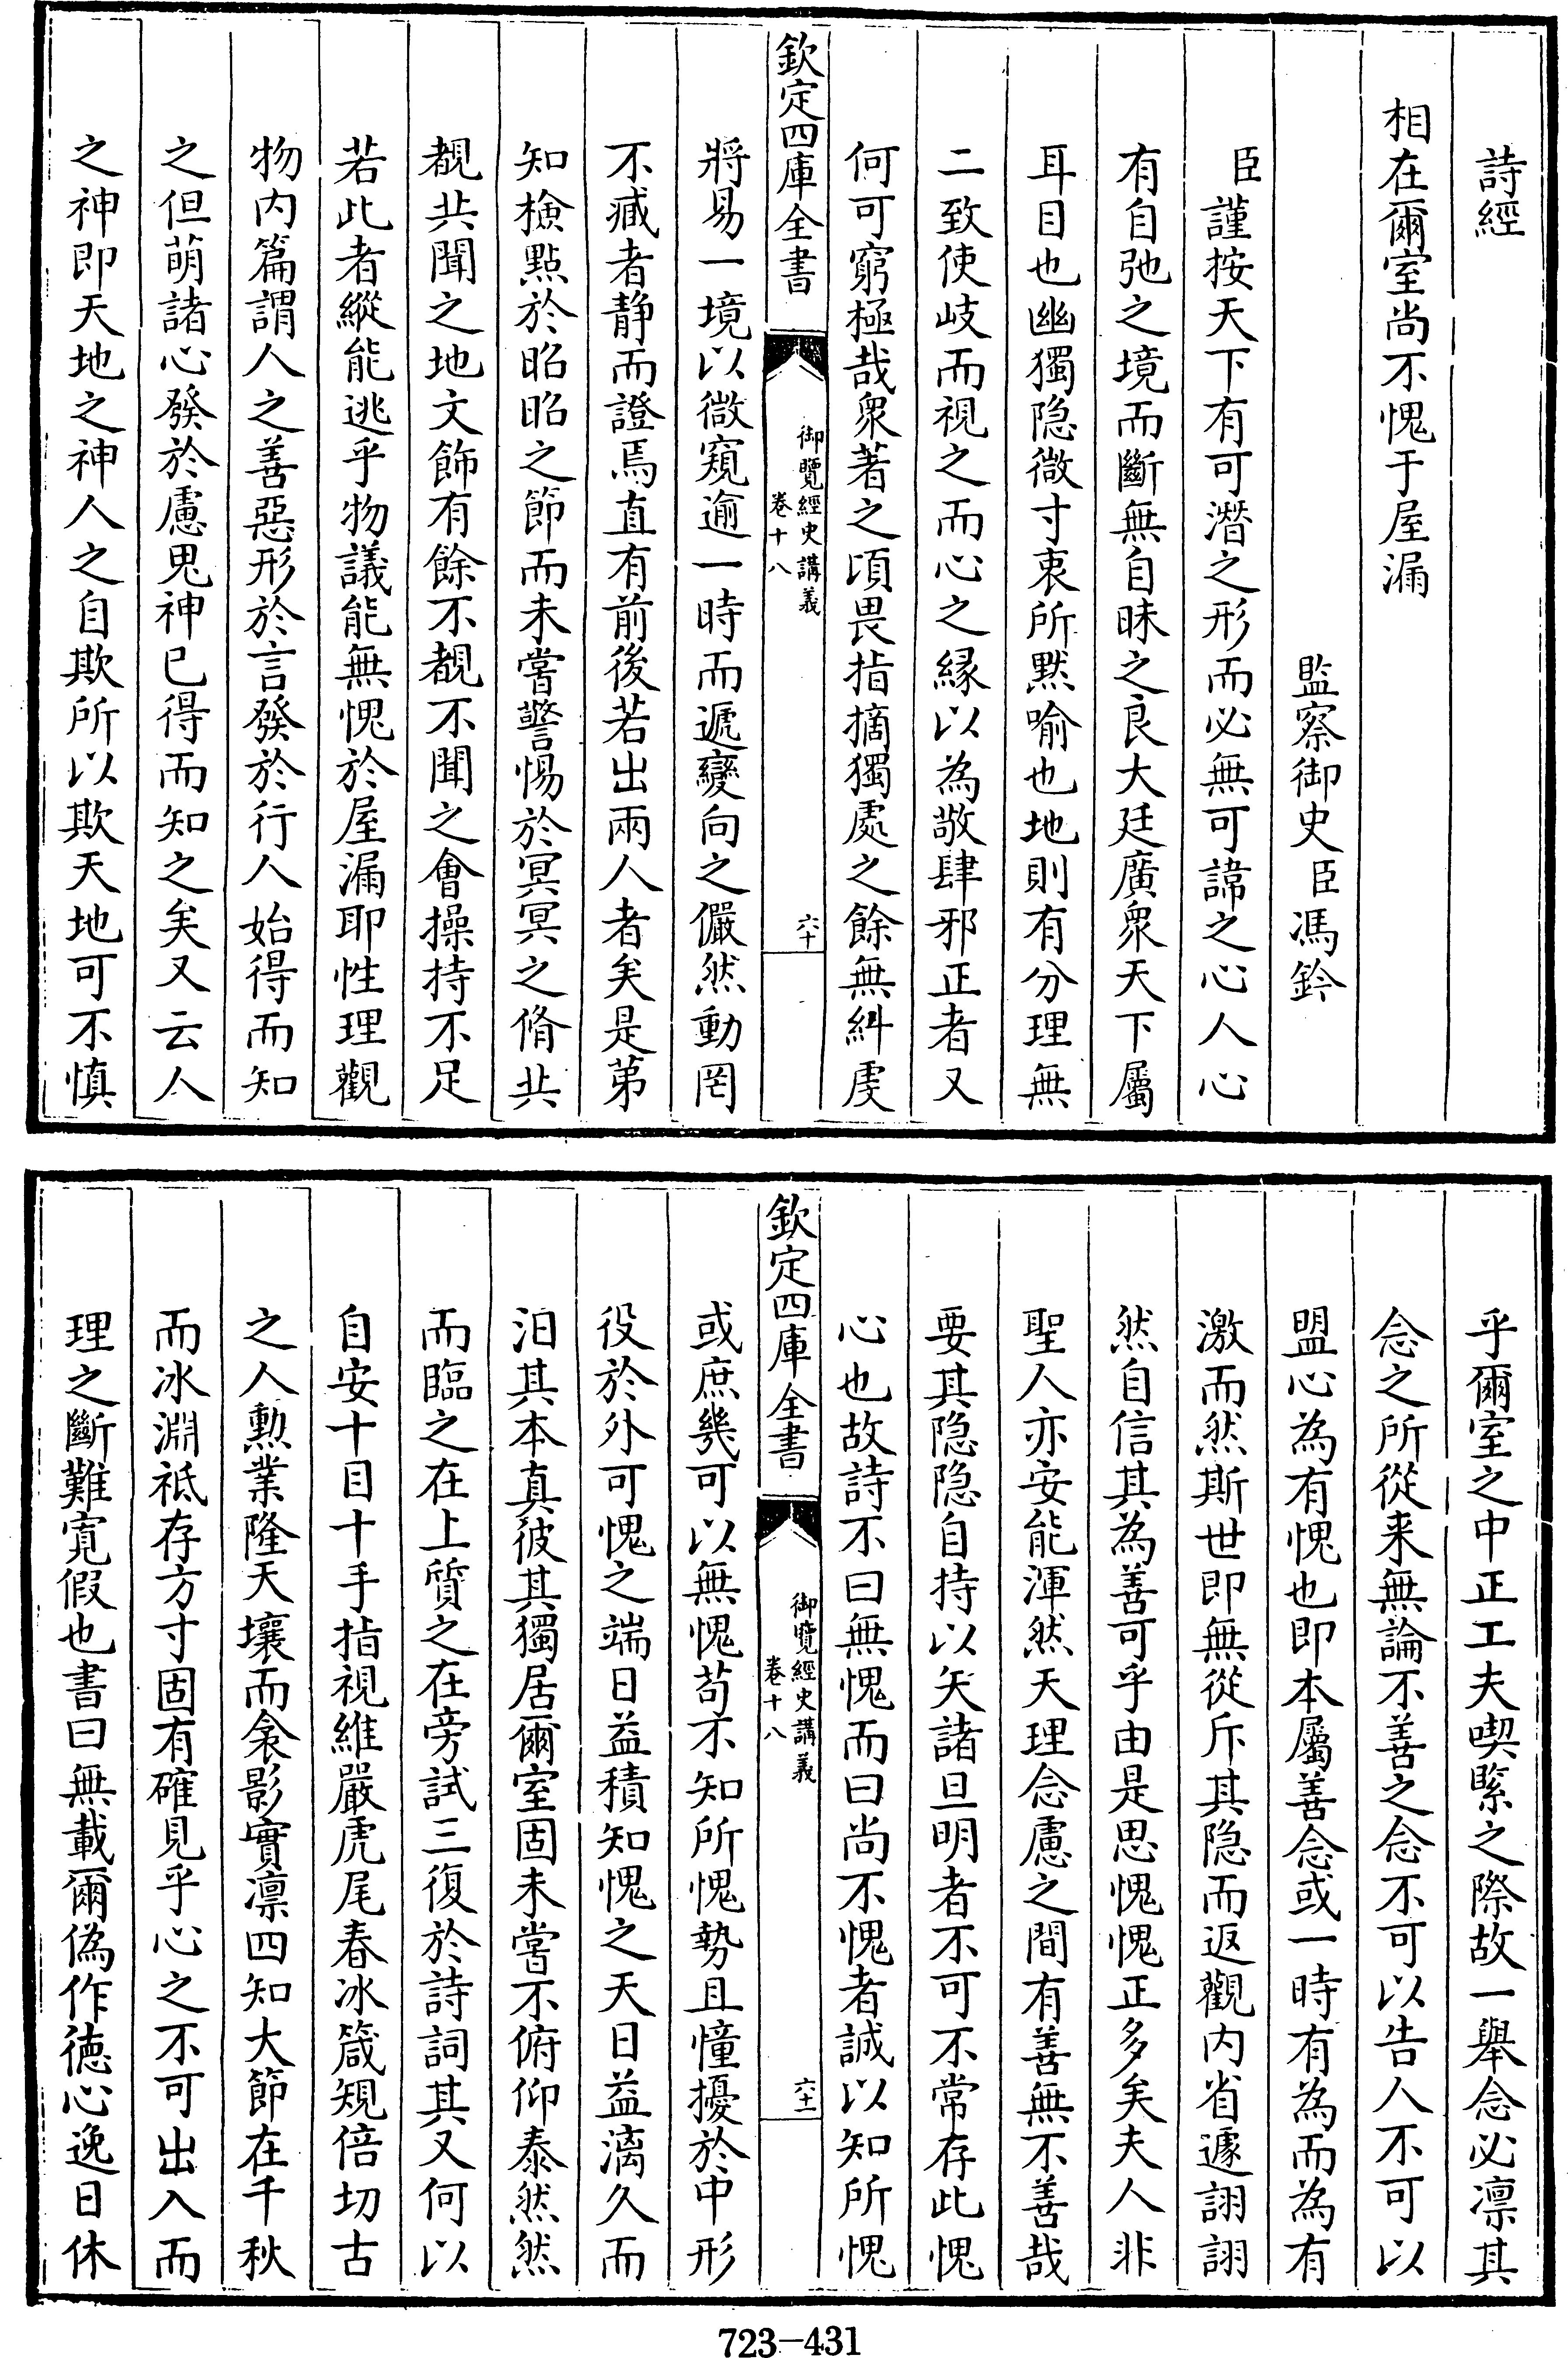 詩經
相在爾室尚不愧于屋漏
監察御史臣馮鈐
臣謹按天下有可潛之形而必無可諱之心人心
有自弛之境而斷無自昧之良大廷廣衆天下屬
耳目也幽獨隐微寸衷所黙喻也地則有分理無
二致使岐而視之而心之縁以為敬肆邪正者又
何可窮極哉衆著之頃畏指摘獨處之餘無糾虔
欽定四庫全書
御覽經史講義
卷十八
六十
將易一境以微窺逾一時而遞變向之儼然動罔
不臧者静而證焉直有前後若出兩人者矣是第
知檢點於昭昭之節而未嘗警惕於冥冥之脩共
覩共聞之地文飾有餘不覩不聞之會操持不足
若此者縱能逃乎物議能無愧於屋漏耶性理觀
物内篇謂人之善惡形於言發於行人始得而知
之但萌諸心發於慮鬼神已得而知之矣又云人
之神即天地之神人之自欺所以欺天地可不慎
乎爾室之中正工夫喫緊之際故一舉念必凛其
念之所從来無論不善之念不可以告人不可以
盟心為有愧也即本屬善念或一時有為而為有
激而然斯世即無從斥其隐而返觀内省遽詡詡
然自信其為善可乎由是思愧愧正多矣夫人非
聖人亦安能渾然天理念慮之間有善無不善哉
要其隐隐自持以矢諸旦明者不可不常存此愧
心也故詩不曰無愧而曰尚不愧者誠以知所愧
欽定四庫全書
御覽經史講義
卷十八
六十一
或庶幾可以無愧苟不知所愧勢且憧擾於中形
役於外可愧之端日益積知愧之天日益漓久而
汨其本真彼其獨居爾室固未嘗不俯仰泰然然
而臨之在上質之在旁試三復於詩詞其又何以
自安十目十手指視維嚴虎尾春冰箴規倍切古
之人勲業隆天壤而衾影實凛四知大節在千秋
而冰淵祗存方寸固有確見乎心之不可出入而
理之斷難寛假也書曰無載爾偽作徳心逸日休
723-431